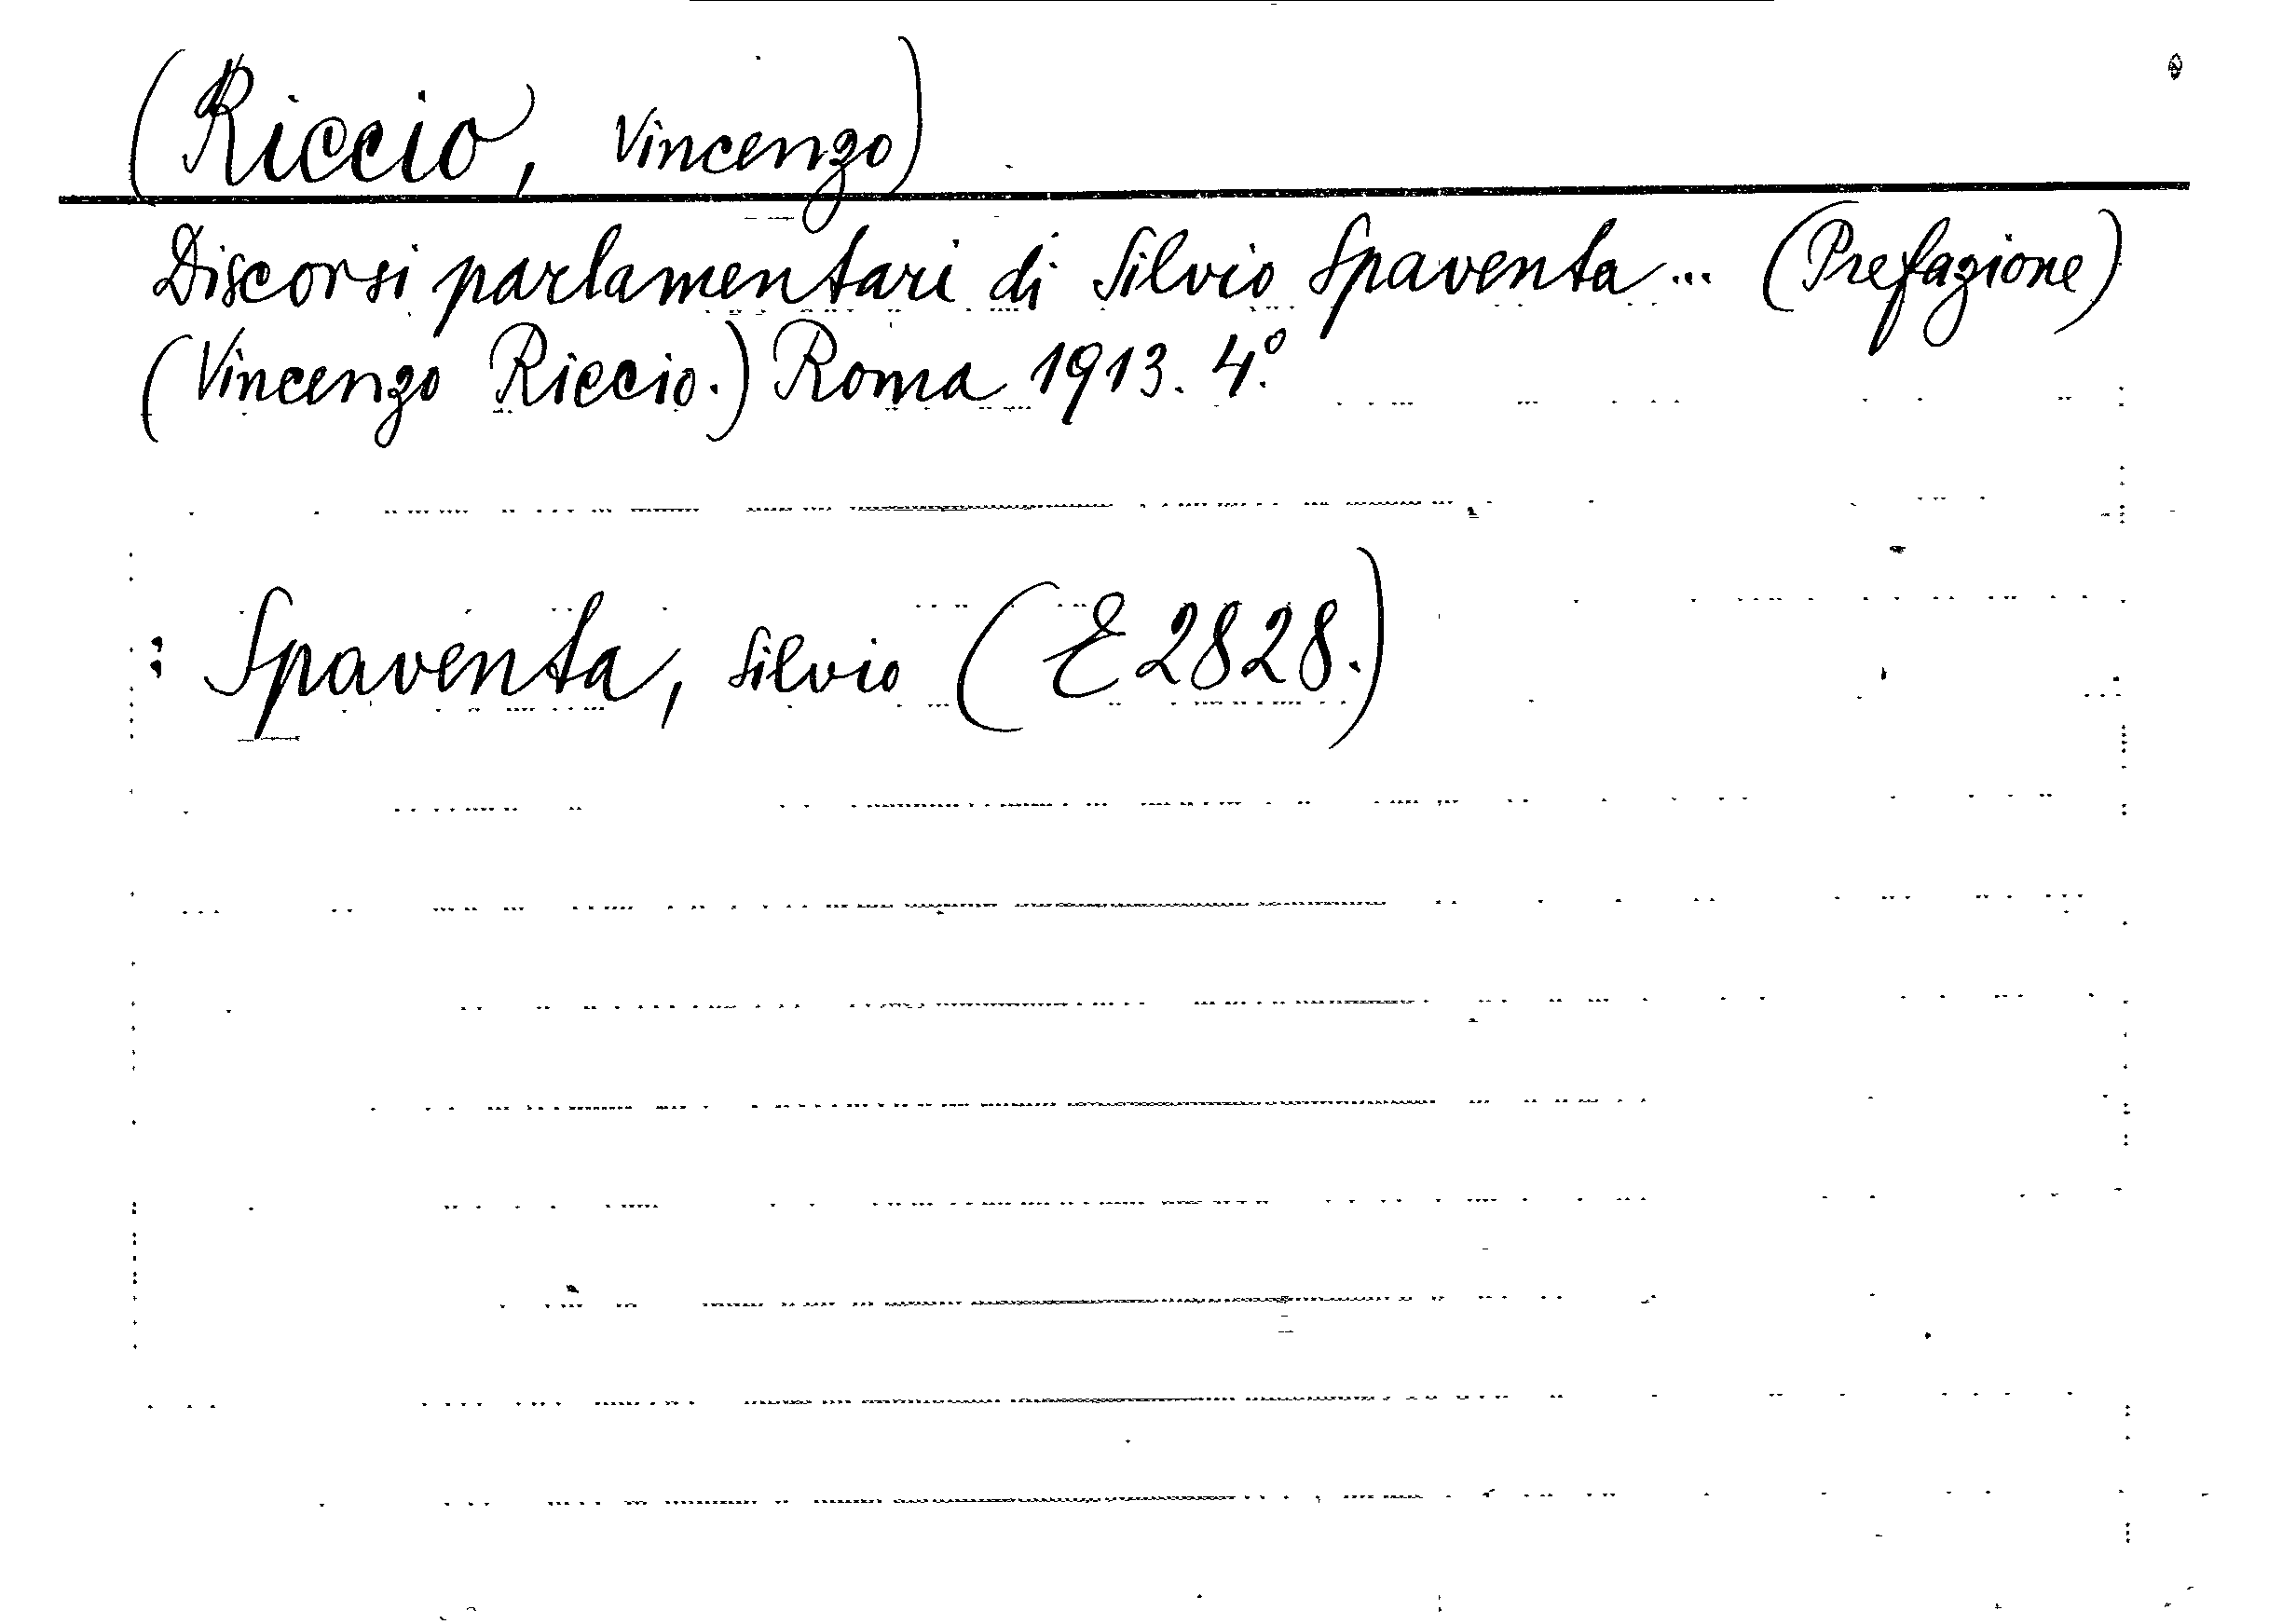 (Riccio, Vincenzo)
Discorsi parlamentari di Silvio Spaventa... (Prefazione)
(Vincenzo Riccio.) Roma 1913. 4.°
: Spaventa, Silvio (E 2828.)